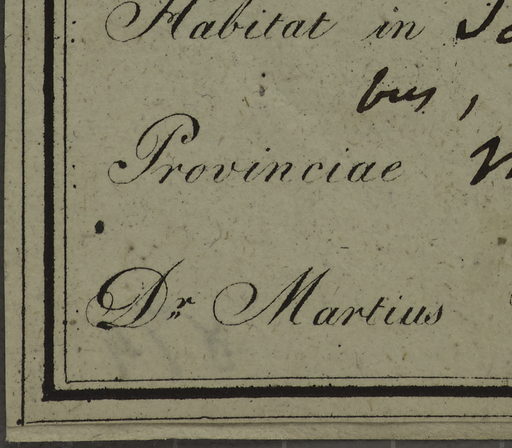 Habitat in
bus,
Provinciae
Dr Martius